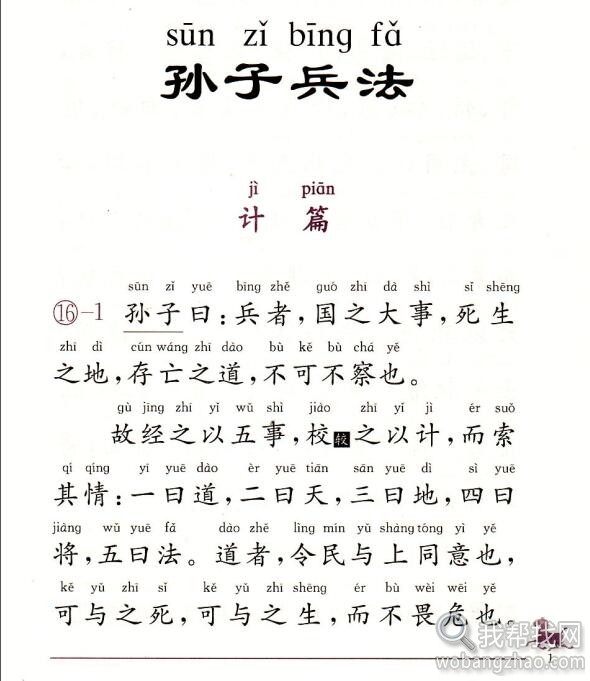 sūn zǐ bīng fǎ
孙子兵法
jì piān
计篇
sūn zǐ yuē bīng zhě guó zhī dà shì sǐ shēng
⑯-1 孙子曰：兵者，国之大事，死生
zhī dì cún wáng zhī dào bù kě bù chá yě
之地，存亡之道，不可不察也。
gù jīng zhī yǐ wǔ shì jiào zhī yǐ jì ér suǒ
故经之以五事，校较之以计，而索
qí qíng yī yuē dào èr yuē tiān sān yuē dì sì yuē
其情：一曰道，二曰天，三曰地，四曰
jiàng wǔ yuē fǎ dào zhě lìng mín yǔ shàng tóng yì yě
将，五曰法。道者，令民与上同意也，
kě yǔ zhī sǐ kě yǔ zhī shēng ér bù wèi wēi yě
可与之死，可与之生，而不畏危也。
我帮找网
wobangzhao.com
1